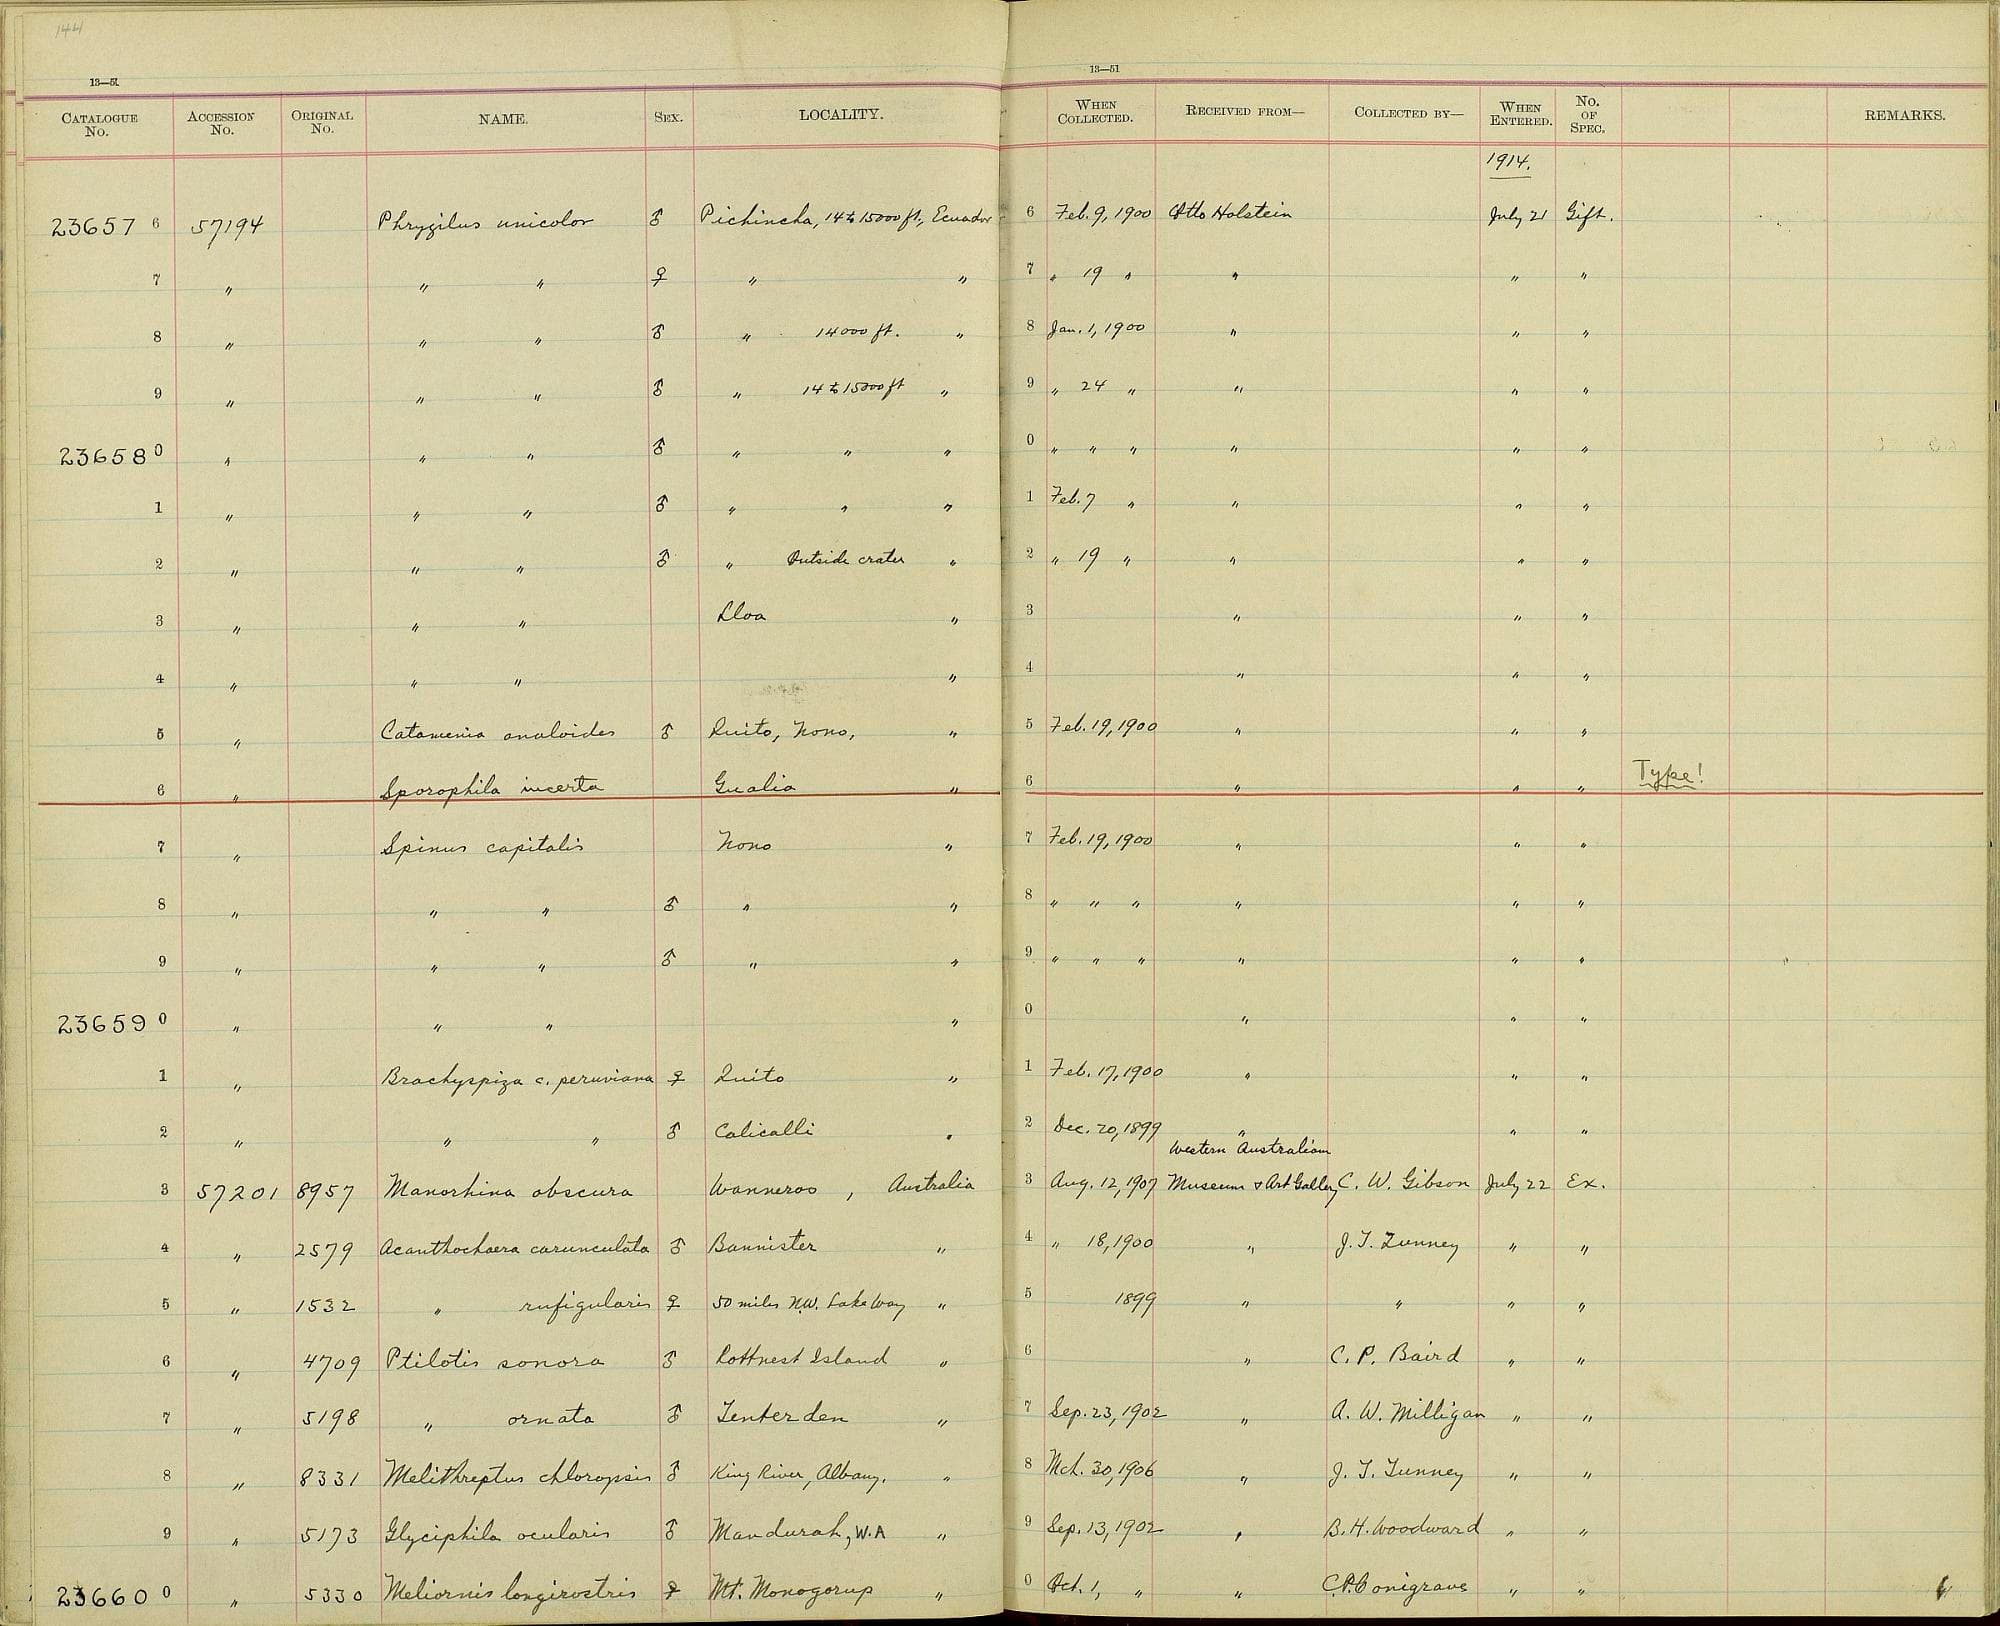 144
13—51
13—51
CATALOGUE No. ACCESSION No. ORIGINAL No. NAME. SEX. LOCALITY. WHEN COLLECTED. RECEIVED FROM— COLLECTED BY— WHEN ENTERED. No. OF SPEC. REMARKS.
1914.
23657 6 57194 Phrygilus unicolor ♂ Pichincha, 14 to 15000 ft, Ecuador 6 Feb. 9, 1900 Otto Holstein July 21 Gift.
7 " " " ♀ " " 7 " 19 " " " "
8 " " " ♂ " 14000 ft. " 8 Jan. 1, 1900 " " "
9 " " " ♂ " 14 to 15000 ft " 9 " 24 " " " "
23658 0 " " " ♂ " " " 0 " " " " " "
1 " " " ♂ " " " 1 Feb. 7 " " " "
2 " " " ♂ " Outside crater " 2 " 19 " " " "
3 " " " Lloa " 3 " " "
4 " " " " 4 " " "
5 " Catamenia analoides ♂ Quito, Nono, " 5 Feb. 19, 1900 " " "
6 " Sporophila incerta Gualia " 6 " " " Type!
7 " Spinus capitalis Nono " 7 Feb. 19, 1900 " " "
8 " " " ♂ " " 8 " " " " " "
9 " " " ♂ " " 9 " " " " " "
23659 0 " " " " 0 " " "
1 " Brachyspiza c. peruviana ♀ Quito " 1 Feb. 17, 1900 " " "
2 " " " ♂ Calicalli " 2 Dec. 20, 1899 " " "
Western Australian
3 57201 8957 Manorhina obscura Wanneroo, Australia 3 Aug. 12, 1907 Museum & Art Gallery C. W. Gibson July 22 Ex.
4 " 2579 Acanthochaera carunculata ♂ Bannister " 4 " 18, 1900 " J. T. Tunney " "
5 " 1532 " rufigularis ♀ 50 miles N.W. Lake Way " 5 1899 " " " "
6 " 4709 Ptilotis sonora ♂ Rottnest Island " 6 " C. P. Baird " "
7 " 5198 " ornata ♂ Tenterden " 7 Sep. 23, 1902 " A. W. Milligan " "
8 " 8331 Melithreptus chloropsis ♂ King River, Albany. " 8 Mch. 30, 1906 " J. T. Tunney " "
9 " 5173 Glyciphila ocularis ♂ Mandurah, W.A " 9 Sep. 13, 1902 " B. H. Woodward " "
23660 0 " 5330 Meliornis longirostris ♀ Mt. Monogorup " 0 Oct. 1, " " C.P. Conigrave " "